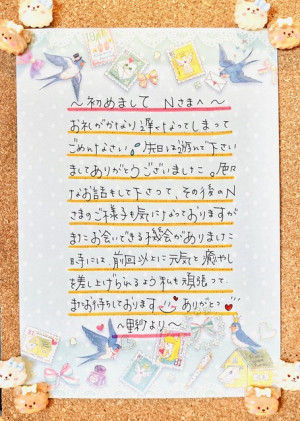 ～初めまして Nさまへ～
お礼がかなり遅くなってしまって
ごめんなさい。先日は遊んで下さい
ましてありがとうございました。色々
なお話をして下さって、その後のN
さまのご様子も気になっておりますが
またお会いできる機会がありました
時には、前回以上に元気と癒やし
を差し上げられるよう私も頑張って
またお待ちしております ありがとう
～里紗より～